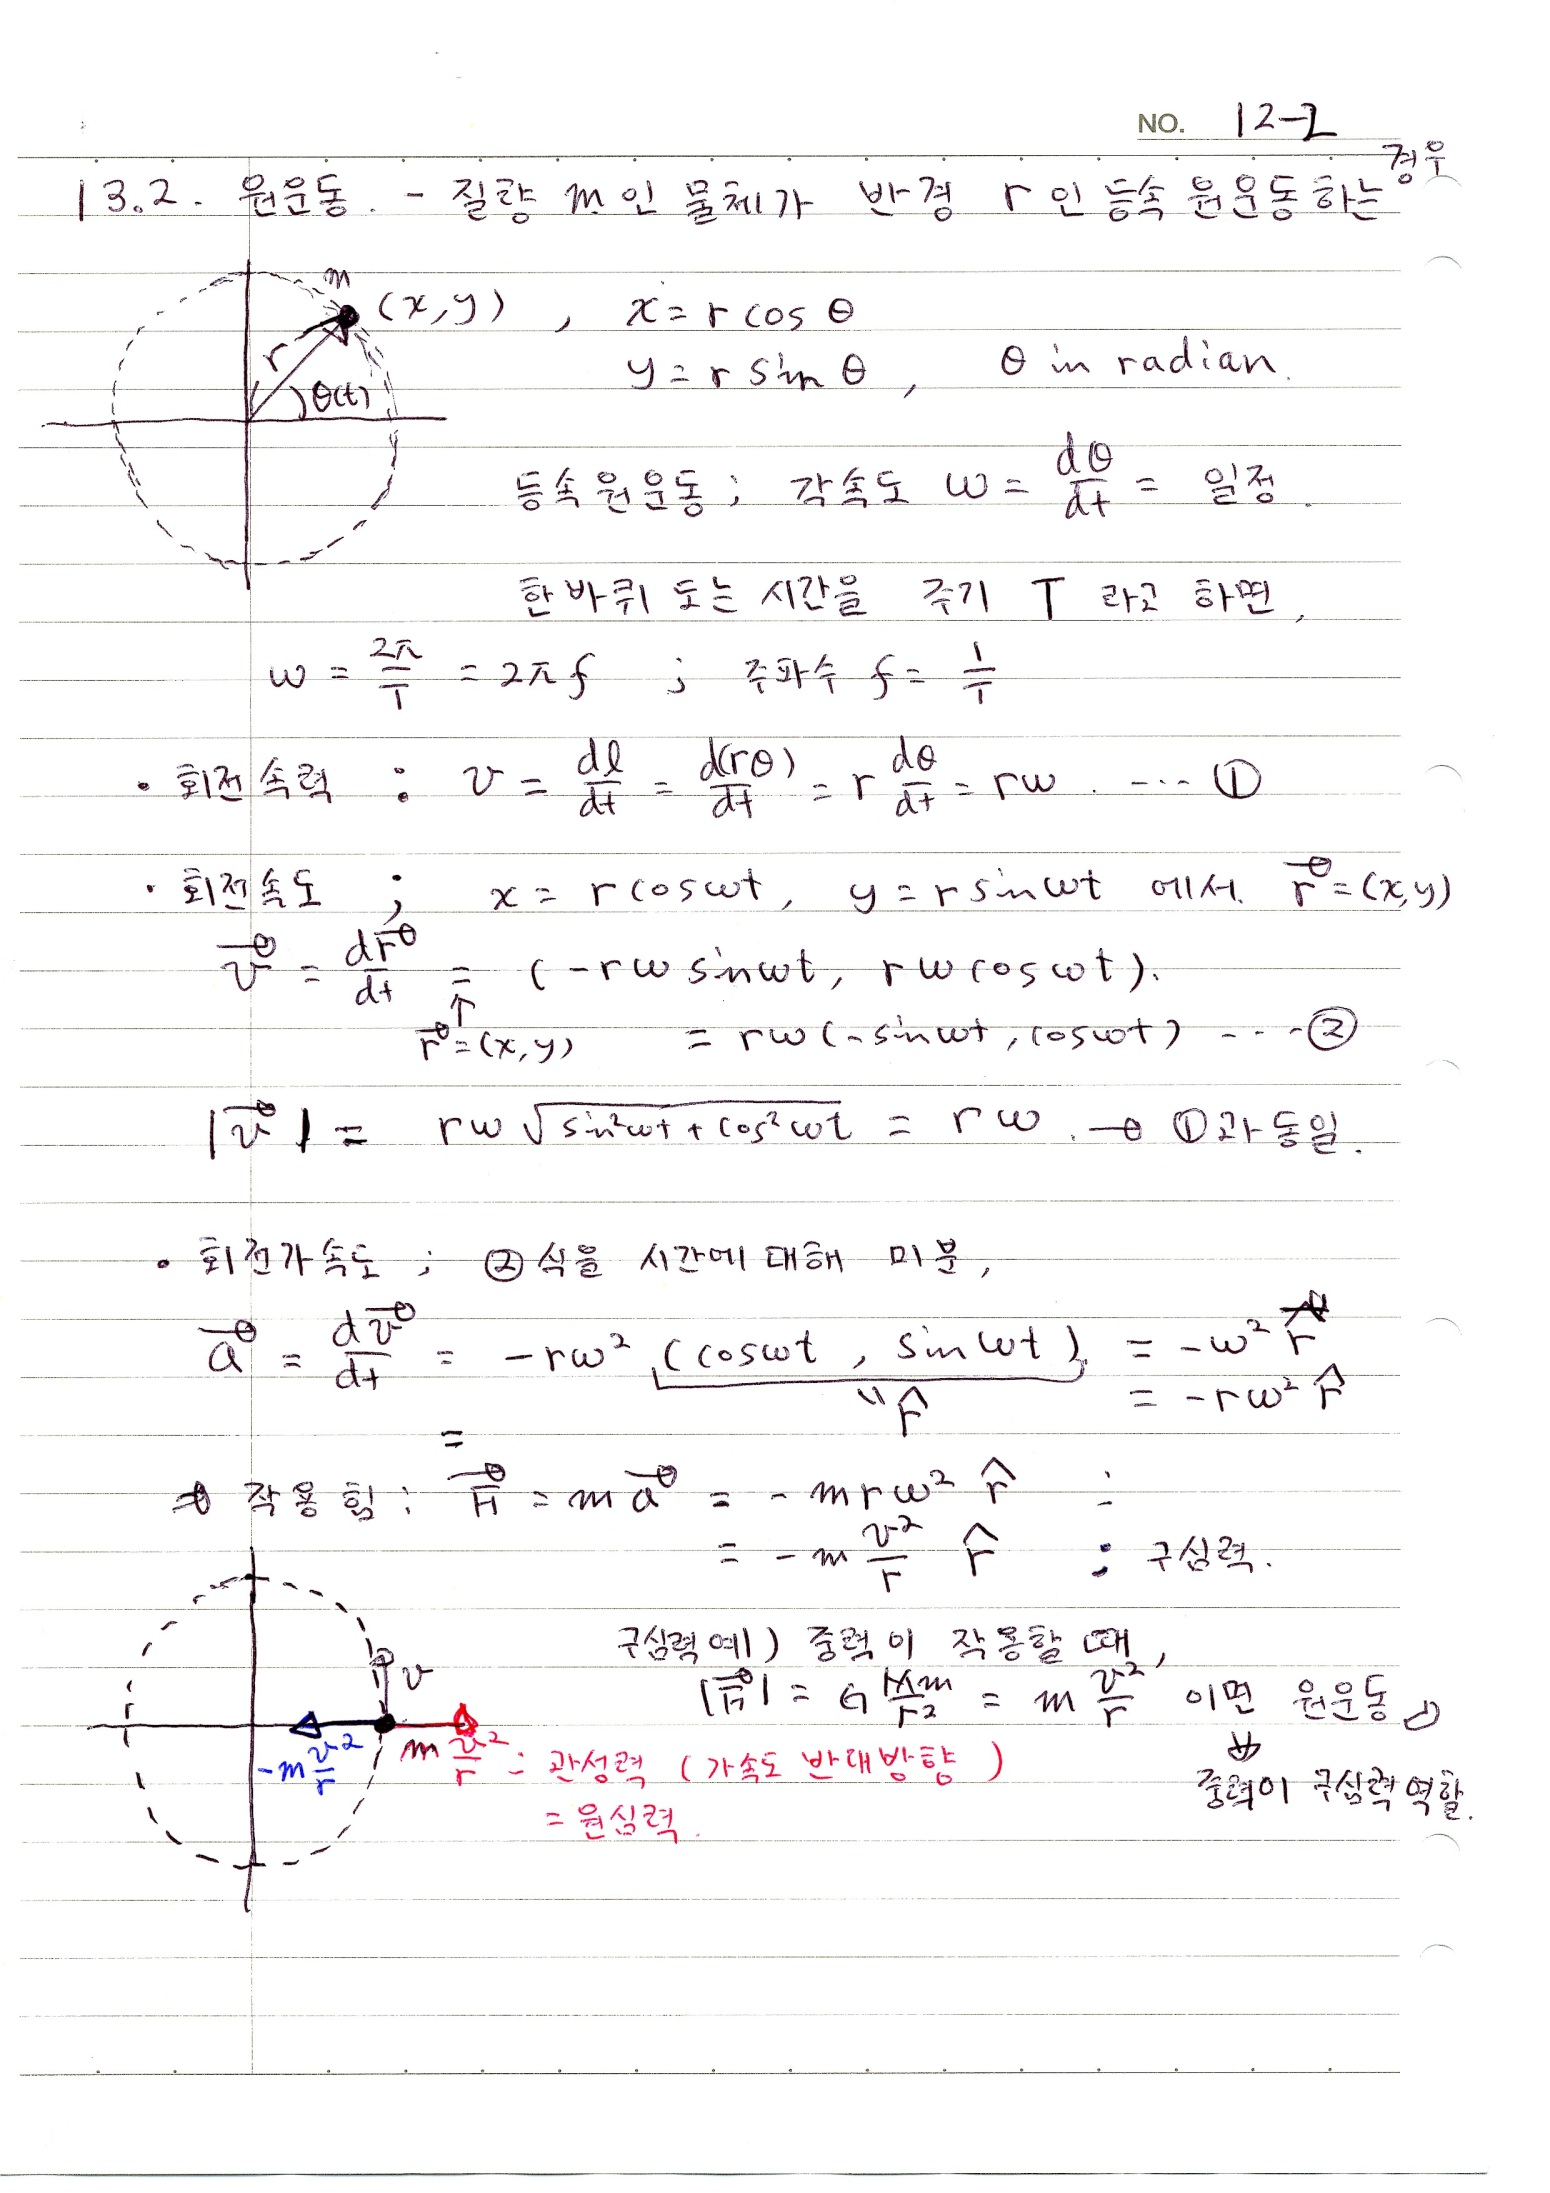 NO. 12-2
13.2. 원운동. - 질량 m인 물체가 반경 r인 등속 원운동하는 경우
m
(x,y) , x = r cos θ
r
θ(t)
y = r sin θ , θ in radian.
등속원운동 ; 각속도 ω = dθ/dt = 일정.
한바퀴 도는 시간을 주기 T 라고 하면,
ω = 2π/T = 2πf ; 주파수 f = 1/T
• 회전속력 : v = dl/dt = d(rθ)/dt = r dθ/dt = rω. ---- ①
• 회전속도 ; x = r cosωt, y = r sinωt 에서 r⃗ = (x,y)
v⃗ = dr⃗/dt = (-rω sinωt, rω cosωt).
↑
r⃗ = (x,y) = rω(-sinωt, cosωt) ---- ②
|v⃗| = rω √(sin²ωt + cos²ωt) = rω. → ①과 동일.
• 회전가속도 ; ②식을 시간에 대해 미분,
a⃗ = dv⃗/dt = -rω² (cosωt, sinωt) = -ω² r⃗
" r̂ = -rω² r̂
=
⇒ 작용힘 : F⃗ = ma⃗ = -mrω² r̂ :
= -m v²/r r̂ : 구심력.
구심력 예) 중력이 작용할 때,
v
|F⃗| = G Mm/r² = m v²/r 이면 원운동
⇓
-m v²/r
m v²/r : 관성력 (가속도 반대방향)
중력이 구심력 역할.
= 원심력.